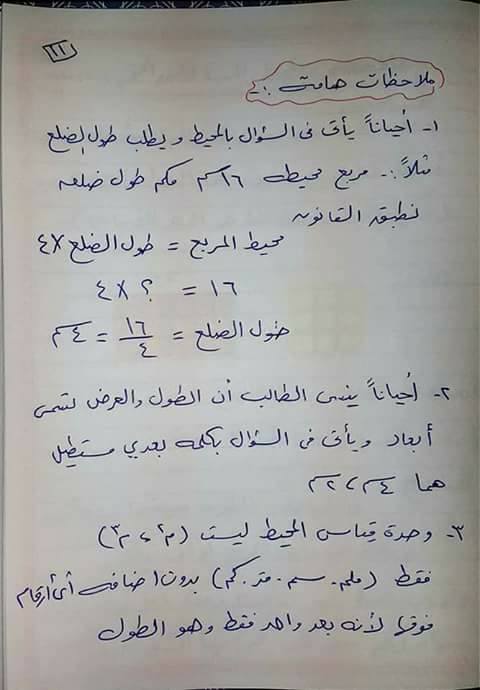 ١١
ملاحظات هامة :-
١- أحياناً يأتي في السؤال بالمحيط ويطلب طول الضلع
مثلاً :- مربع محيطه ١٦سم فكم طول ضلعه
نطبق القانون
محيط المربع = طول الضلع ×٤
١٦ = ؟ ×٤
طول الضلع = ١٦/٤ = ٤سم
٢- أحياناً ينسى الطالب أن الطول والعرض تسمى
أبعاد ويأتي في السؤال بكلمة بعدي مستطيل
هما ٤سم، ٢سم
٣- وحدة قياس المحيط ليست (م٢، م٣)
فقط (ملم. سم. متر. كم) بدون اضافة أي أرقام
فوقها لأنه بعد واحد فقط وهو الطول